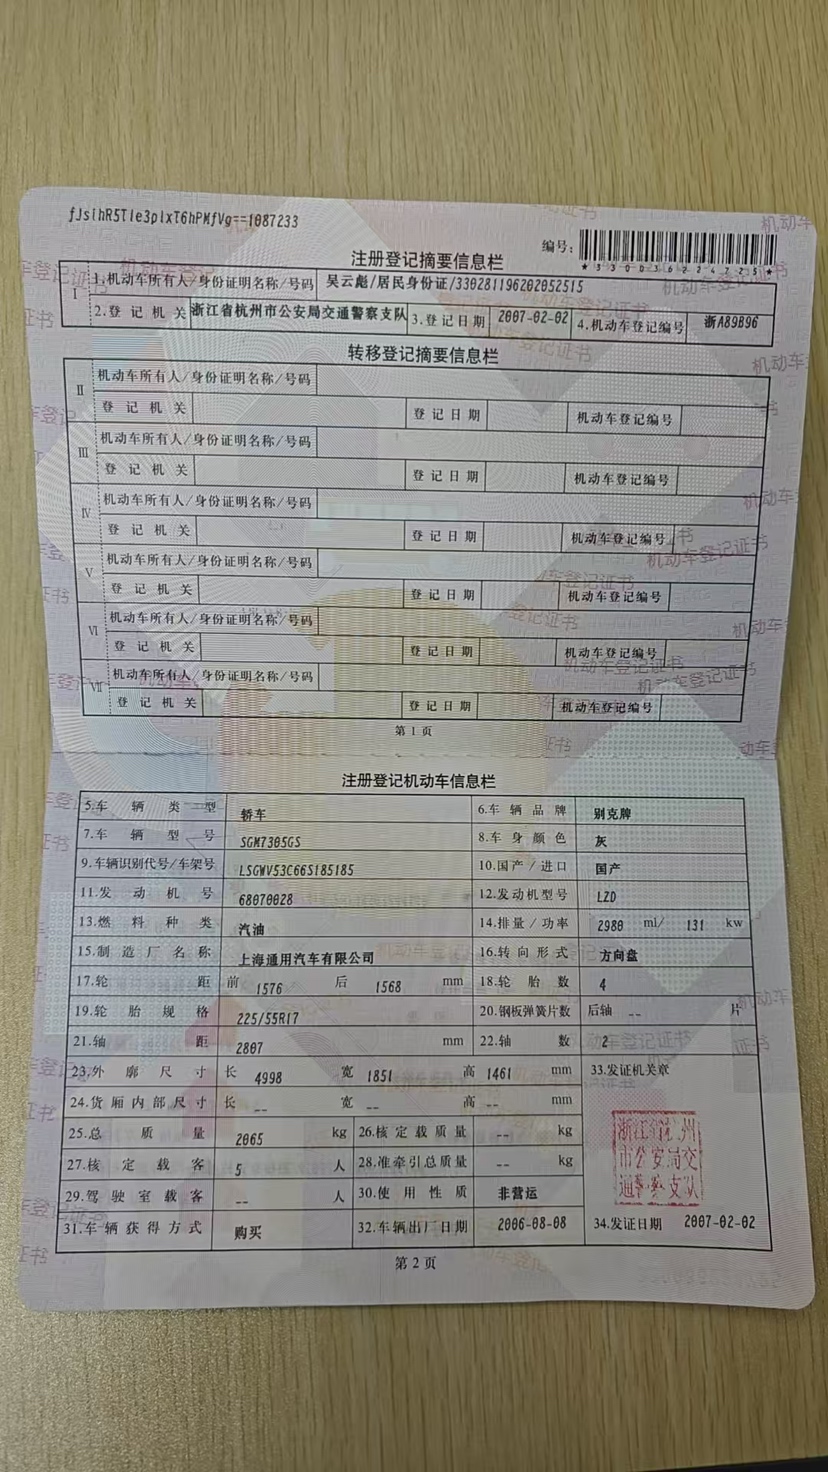 fJsihR5Tle3plxT6hPMfVg==1087233
注册登记摘要信息栏 编号:
*330036224725*
I 1.机动车所有人/身份证明名称/号码 吴云彪/居民身份证/330281196202052515
2.登记机关 浙江省杭州市公安局交通警察支队 3.登记日期 2007-02-02 4.机动车登记编号 浙A89B96
转移登记摘要信息栏
II 机动车所有人/身份证明名称/号码
登记机关 登记日期 机动车登记编号
III 机动车所有人/身份证明名称/号码
登记机关 登记日期 机动车登记编号
IV 机动车所有人/身份证明名称/号码
登记机关 登记日期 机动车登记编号
V 机动车所有人/身份证明名称/号码
登记机关 登记日期 机动车登记编号
VI 机动车所有人/身份证明名称/号码
登记机关 登记日期 机动车登记编号
VII 机动车所有人/身份证明名称/号码
登记机关 登记日期 机动车登记编号
第1页
注册登记机动车信息栏
5.车辆类型 轿车 6.车辆品牌 别克牌
7.车辆型号 SGM7305GS 8.车身颜色 灰
9.车辆识别代号/车架号 LSGWV53C66S185185 10.国产/进口 国产
11.发动机号 68070028 12.发动机型号 LZD
13.燃料种类 汽油 14.排量/功率 2980 ml/ 131 kw
15.制造厂名称 上海通用汽车有限公司 16.转向形式 方向盘
17.轮距 前 1576 后 1568 mm 18.轮胎数 4
19.轮胎规格 225/55R17 20.钢板弹簧片数 后轴 -- 片
21.轴距 2807 mm 22.轴数 2
23.外廓尺寸 长 4998 宽 1851 高 1461 mm 33.发证机关章
24.货厢内部尺寸 长 -- 宽 -- 高 -- mm
25.总质量 2065 kg 26.核定载质量 -- kg
27.核定载客 5 人 28.准牵引总质量 -- kg
29.驾驶室载客 -- 人 30.使用性质 非营运
浙江省杭州
市公安局交
通警察支队
31.车辆获得方式 购买 32.车辆出厂日期 2006-08-08 34.发证日期 2007-02-02
第2页